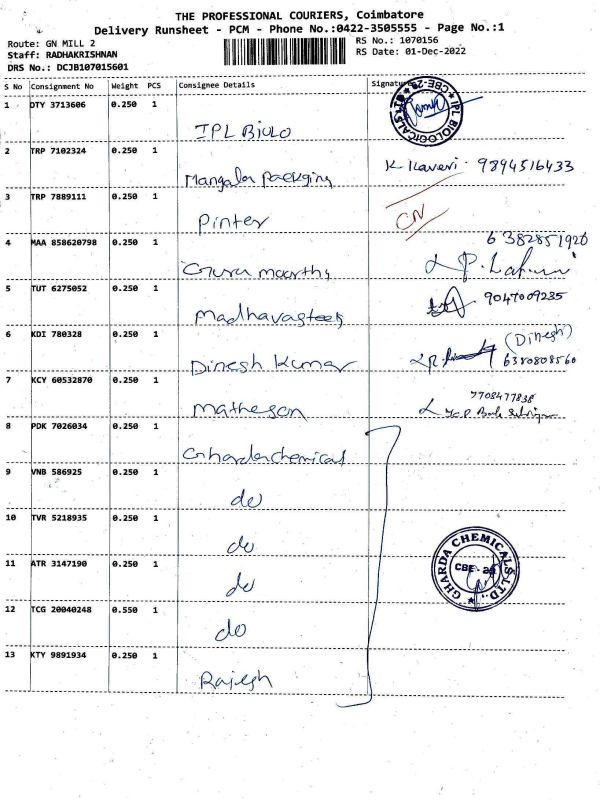 THE PROFESSIONAL COURIERS, Coimbatore
Delivery Runsheet - PCM - Phone No.:0422-3505555 - Page No.:1
Route: GN MILL 2
RS No.: 1070156
Staff: RADHAKRISHNAN
RS Date: 01-Dec-2022
DRS No.: DCJB107015601
S No Consignment No Weight PCS Consignee Details Signature
1 DTY 3713606 0.250 1 IPL Biolo
IPL BIOLOGICALS CBE-29
2 TRP 7102324 0.250 1 Mangala packging K Kaveri. 9894516433
3 TRP 7889111 0.250 1 Pinter CN
4 MAA 858620798 0.250 1 Guru moorthy 6382851920
5 TUT 6275052 0.250 1 Madhavasteels 9047009235
6 KDI 780328 0.250 1 Dinesh Kumar (Dinesh) 6380808560
7 KCY 60532870 0.250 1 Matheson 7708477838
8 PDK 7026034 0.250 1 Ghardachemical
9 VNB 586925 0.250 1 do
10 TVR 5218935 0.250 1 do
11 ATR 3147190 0.250 1 do
GHARDA CHEMICALS LTD. CBE-29
12 TCG 20040248 0.550 1 do
13 KTY 9891934 0.250 1 Rajesh